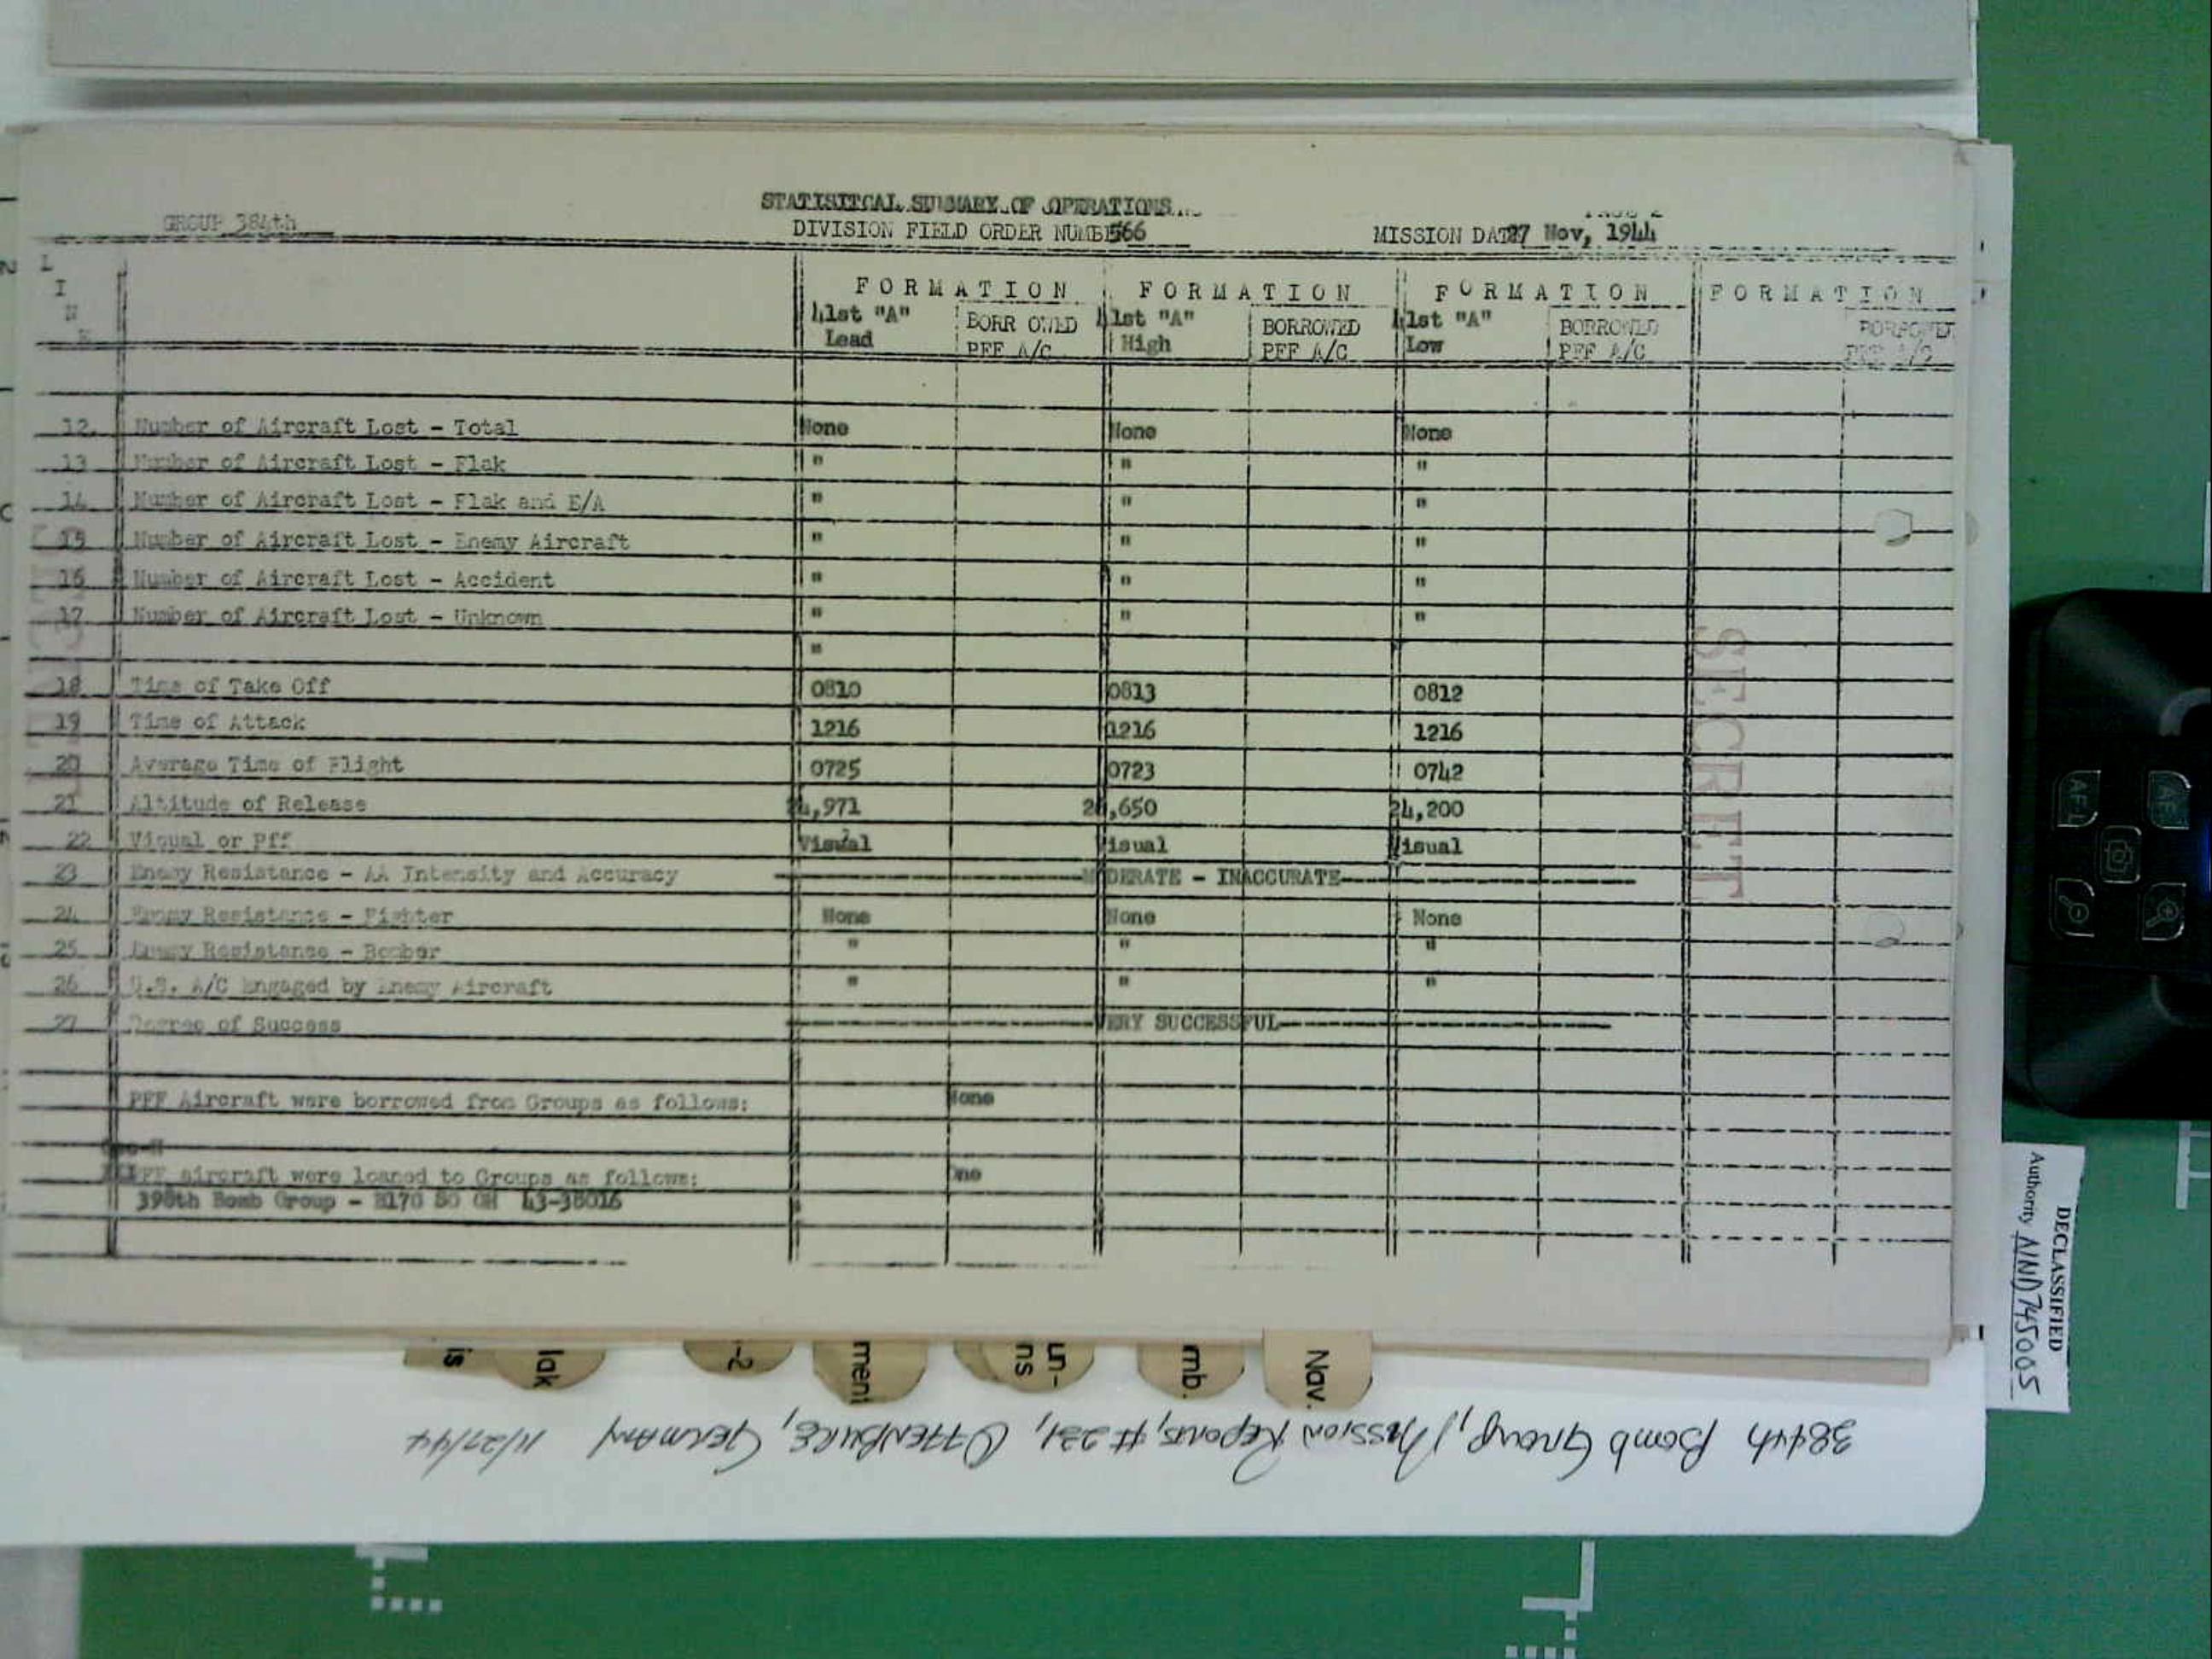 STATISITCAL SUMMARY OF OPERATIONS
GROUP 384th DIVISION FIELD ORDER NUMBE566 MISSION DATE27 Nov, 1944
L I N E
FORMATION FORMATION FORMATION FORMATION
41st "A" Lead BORR OWED PFF A/C 41st "A" High BORROWED PFF A/C 41st "A" Low BORROWED PFF A/C BORROWED PFF A/C
12. Number of Aircraft Lost - Total None None None
13 Number of Aircraft Lost - Flak " " "
14 Number of Aircraft Lost - Flak and E/A " " "
15 Number of Aircraft Lost - Enemy Aircraft " " "
16 Number of Aircraft Lost - Accident " " "
17 Number of Aircraft Lost - Unknown " " "
"
18 Time of Take Off 0810 0813 0812
19 Time of Attack 1216 1216 1216
20 Average Time of Flight 0725 0723 0742
21 Altitude of Release 24,971 ,650 24,200
22 Visual or Pff Visual Visual Visual
23 Enemy Resistance - AA Intensity and Accuracy MODERATE - INACCURATE
24 Enemy Resistance - Fighter None None None
25 Enemy Resistance - Bomber " " "
26 U.S. A/C Engaged by Enemy Aircraft " " "
27 Degree of Success VERY SUCCESSFUL
PFF Aircraft were borrowed from Groups as follows: None
PFF aircraft were loaned to Groups as follows: One
398th Bomb Group - B17G SO 43-38016
SECRET
SECRET
DECLASSIFIED
Authority NND745005
is
lak
-2
ment
un-
ns
mb.
Nav.
384th Bomb Group, Mission Reports, #231, Offenburg, Germany 11/27/44
AF-L